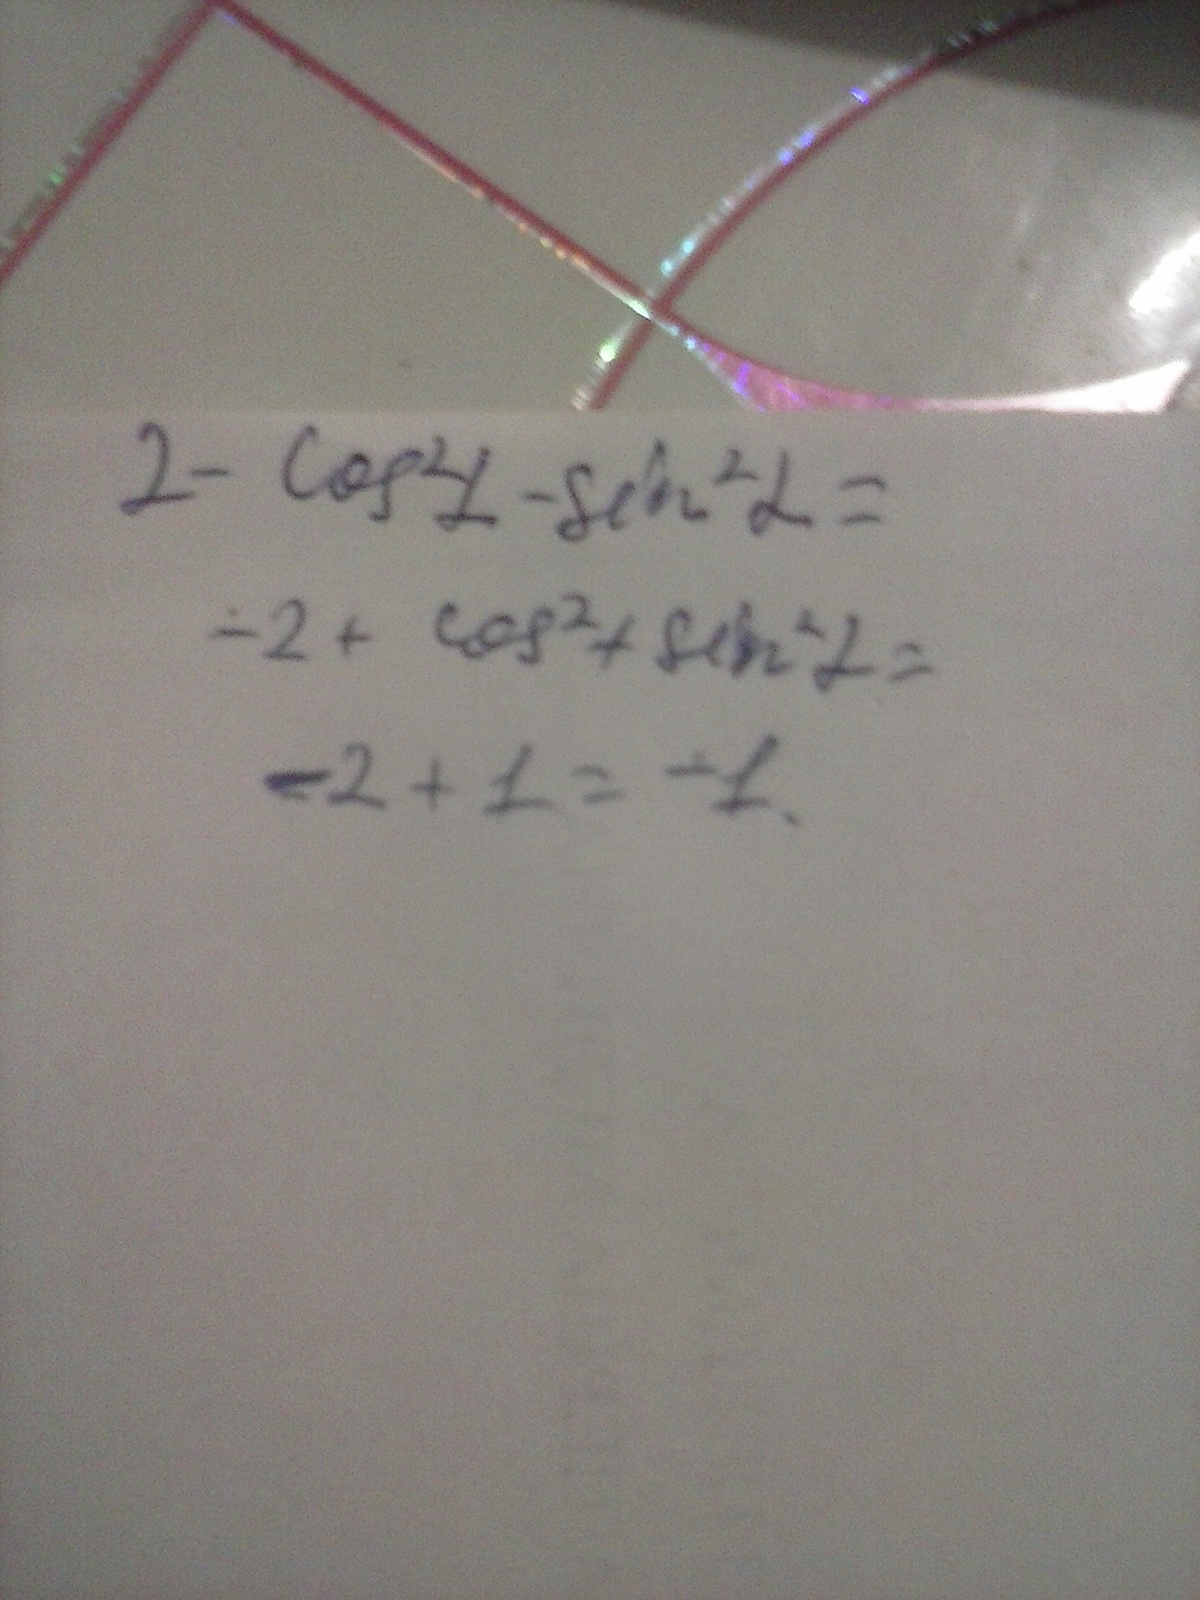 2 - cos²α - sin²α =
-2 + cos² + sin²α =
-2 + 1 = -1.